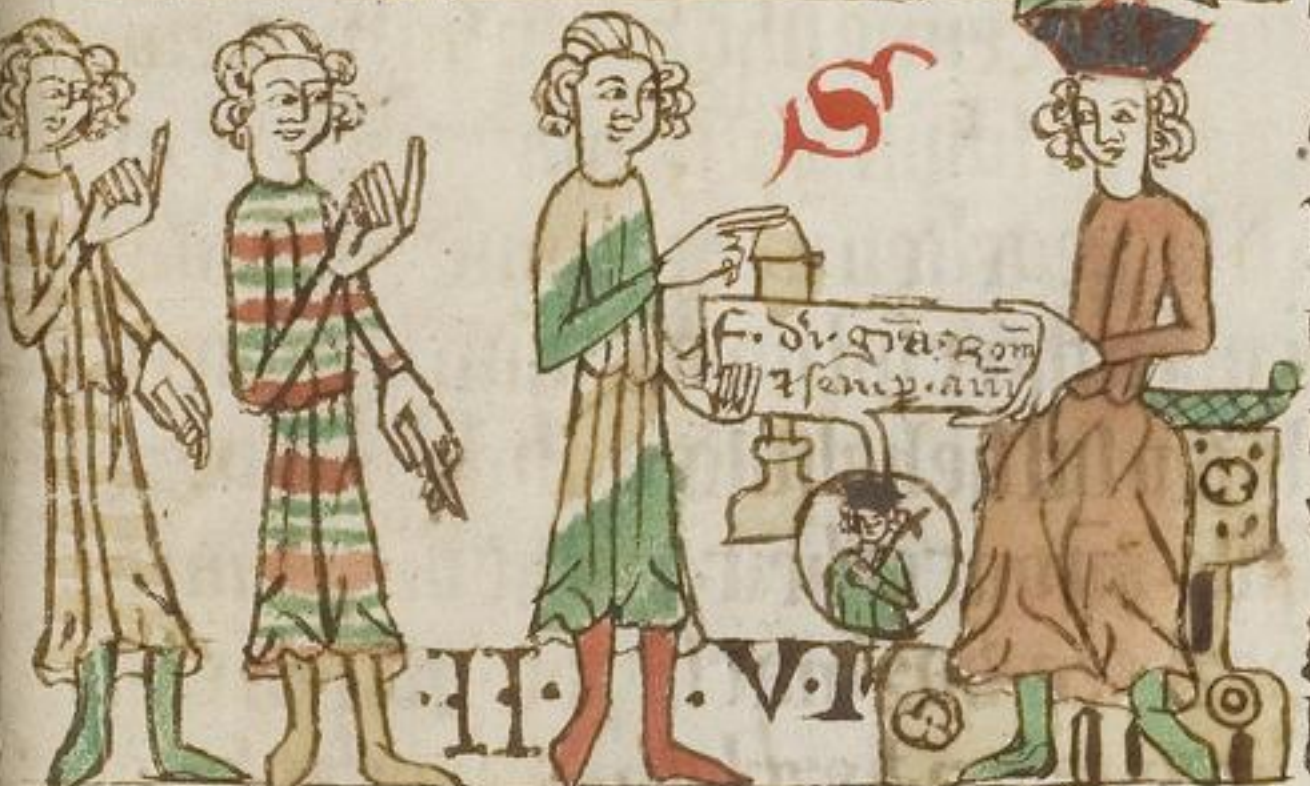 S
f. di. gra. Rom
⁊ semp. au
.II. .V.I